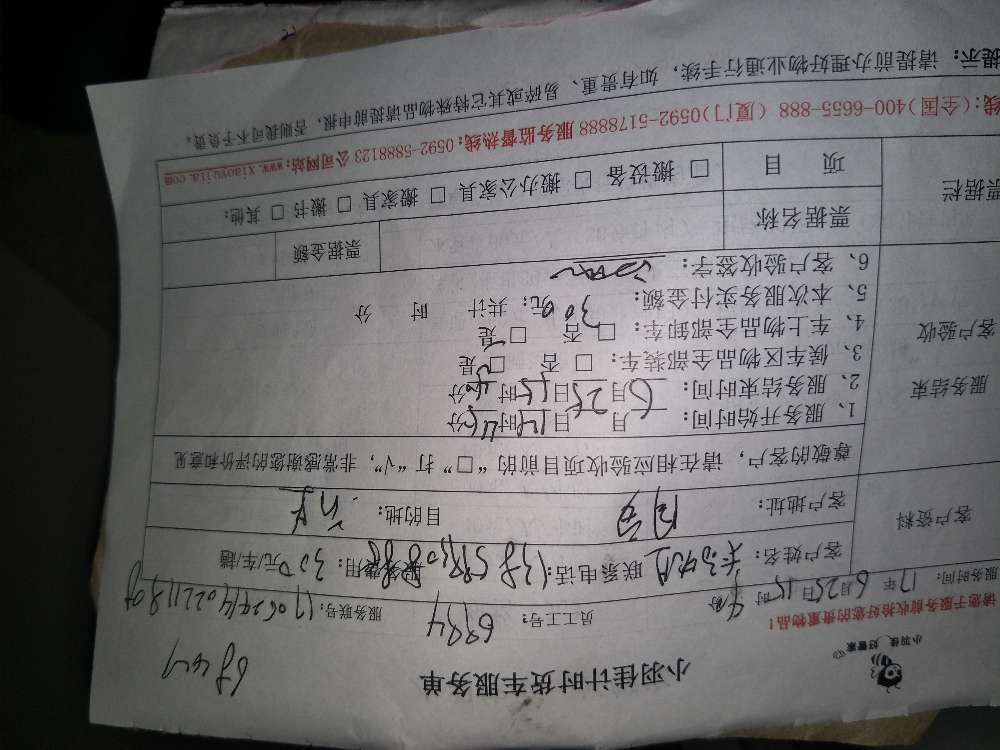 小羽佳计时货车服务单
小羽佳 好管家
请您于服务前收拾好您的贵重物品!
服务时间: 17年 6月25日15时 分 员工工号: 6994 服务联号:
客户资料
客户姓名: 联系电话: 服务费用: 300 元/车/趟
客户地址: 同安 目的地:
尊敬的客户，请在相应验收项目前的“□”打“√”，非常感谢您的评价和意见
服务结束 客户验收
1、服务开始时间: 月 日14时45分
2、服务结束时间: 6月25日15时40分
3、候车区物品全部装车: □ 否 □ 是
4、车上物品全部卸车: □ 否 □ 是
5、本次服务实付金额: 300元; 共计 时 分
6、客户验收签字:
票据栏
票据名称 票据金额
项目 □ 搬设备 □ 搬办公家具 □ 搬家具 □ 搬书 □ 其他:
线:(全国)400-6655-888 (厦门)0592-5178888 服务监督热线: 0592-5888123 公司网站: www.xiaoyujia.com
提示: 请提前办理好物业通行手续，如有贵重、易碎或其它特殊物品请提前申报，否则我司不予负责。